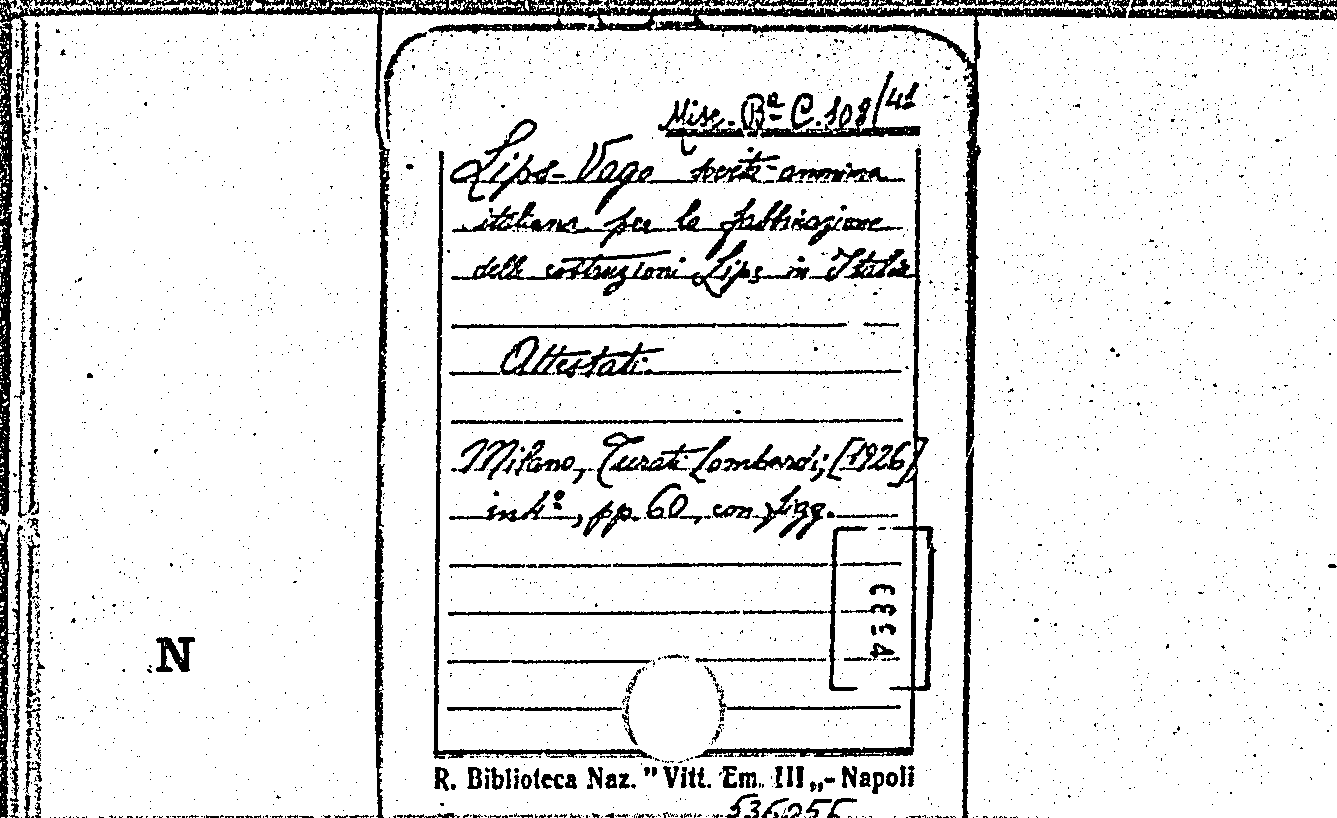 Misc. Bª C. 108/41
Lips-Vago società anonima
italiana per la fabbricazione
delle costruzioni Lips in Italia
Attestati.
Milano, Turati Lombardi, [1926]
in 4º, pp. 60, con figg.
N
R. Biblioteca Naz. "Vitt. Em. III„ - Napoli